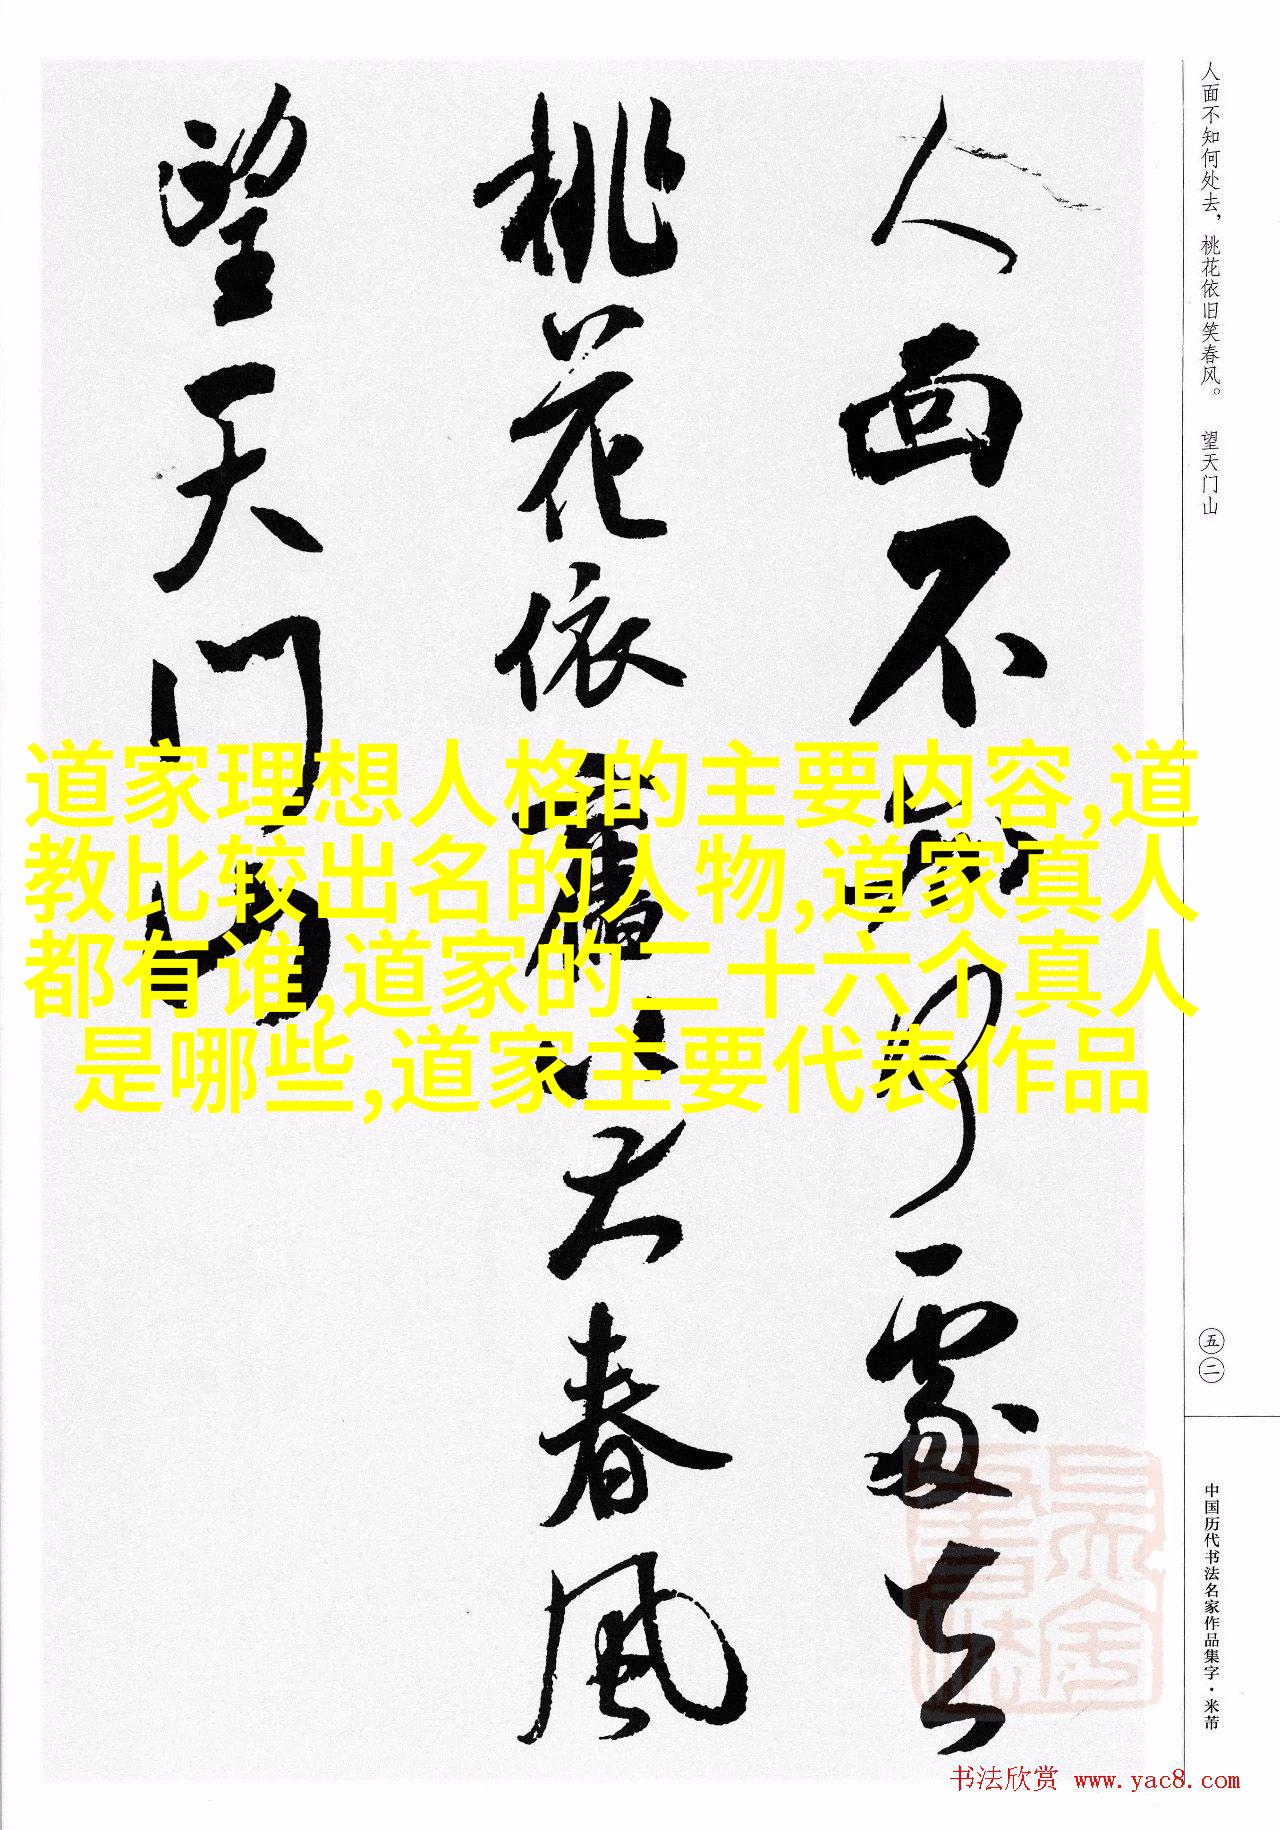 人面不知何处去，桃花依旧笑春风。 望天门山
五二
中国历代书法名家作品集字·米芾
人面不知何處去
桃花依舊笑春風
望天門山
道家理想人格的主要内容,道
教比较出名的人物,道家真人
都有谁,道家的二十六个真人
是哪些,道家主要代表作品
书法欣赏 www.yac8.com